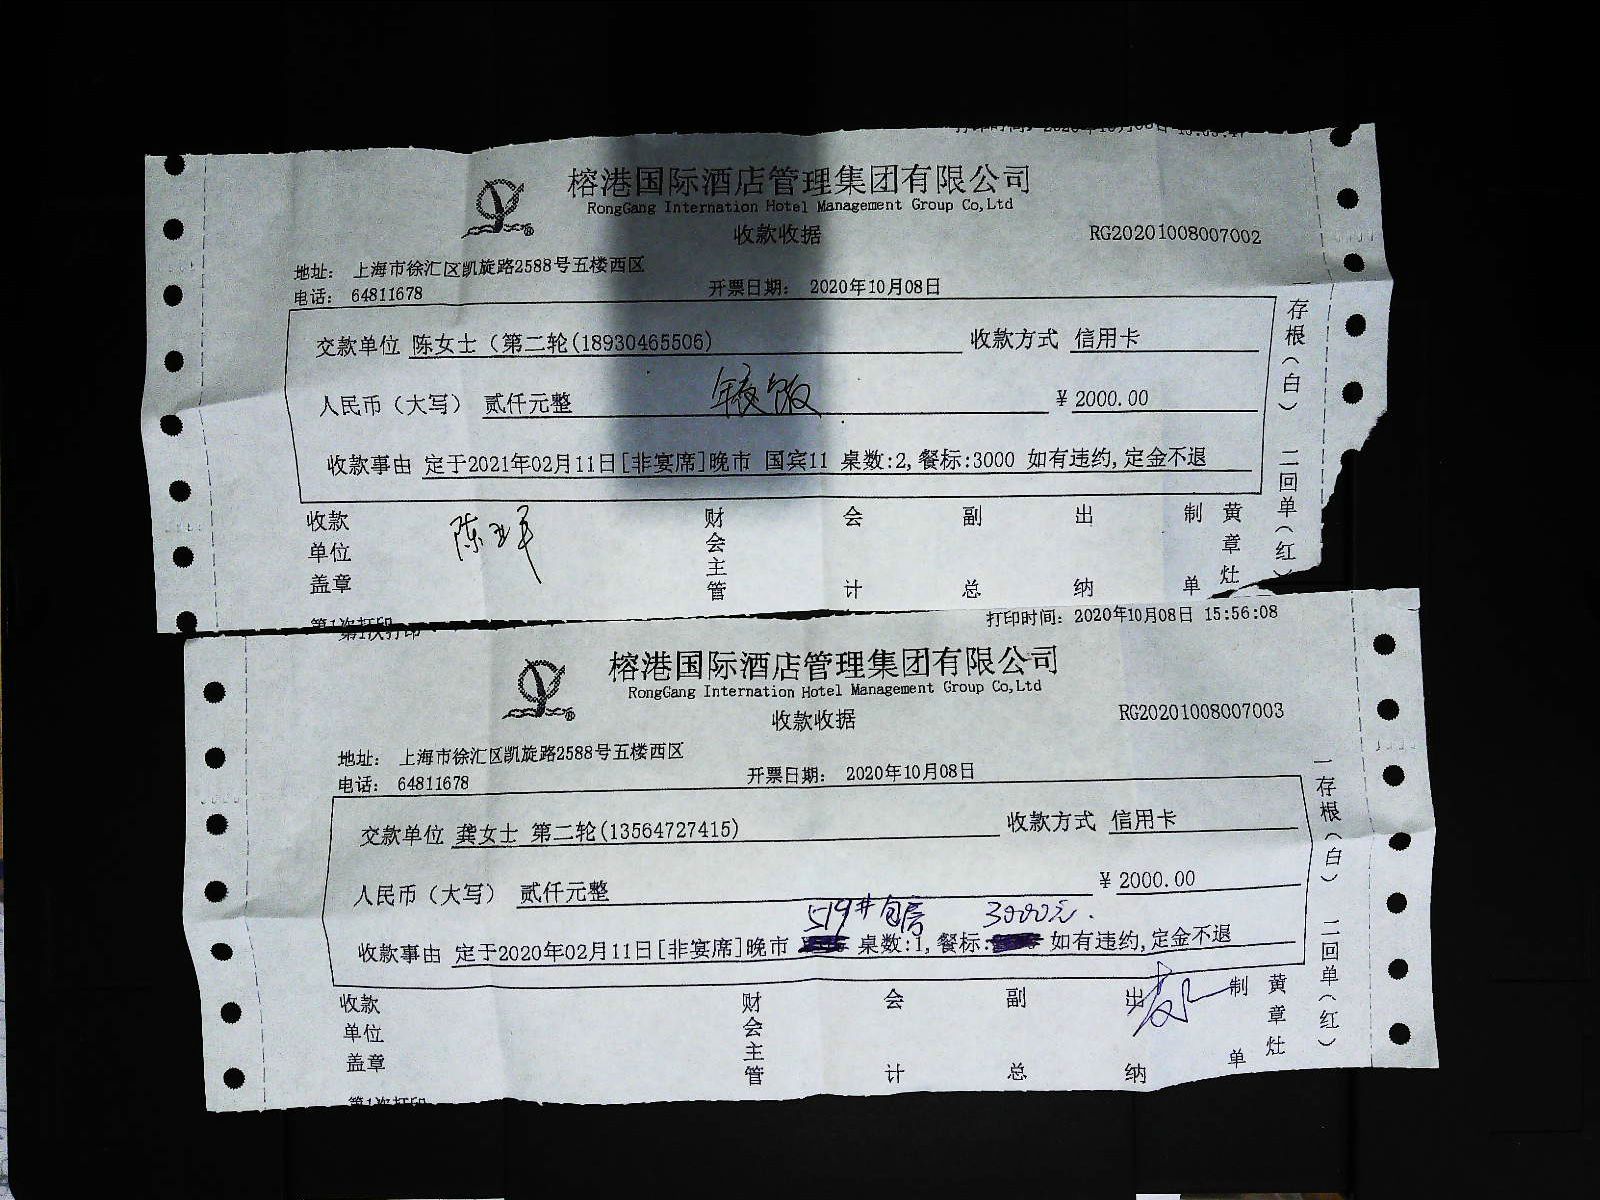 打印时间: 2020年10月08日 15:55:47
榕港国际酒店管理集团有限公司
RongGang Internation Hotel Management Group Co,Ltd
收款收据
RG20201008007002
地址: 上海市徐汇区凯旋路2588号五楼西区
电话: 64811678 开票日期: 2020年10月08日
交款单位 陈女士（第二轮(18930465506) 收款方式 信用卡
人民币（大写） 贰仟元整 年夜饭 ￥2000.00
收款事由 定于2021年02月11日[非宴席]晚市 国宾11 桌数:2,餐标:3000 如有违约,定金不退
收款单位盖章 财会主管 会计 副总 出纳 制单 黄章灶
一存根（白） 二回单（红）
第1次打印
打印时间: 2020年10月08日 15:56:08
榕港国际酒店管理集团有限公司
RongGang Internation Hotel Management Group Co,Ltd
收款收据
RG20201008007003
地址: 上海市徐汇区凯旋路2588号五楼西区
电话: 64811678 开票日期: 2020年10月08日
交款单位 龚女士 第二轮(13564727415) 收款方式 信用卡
人民币（大写） 贰仟元整 ￥2000.00
519#包房 3000元.
收款事由 定于2020年02月11日[非宴席]晚市 桌数:1,餐标: 如有违约,定金不退
收款单位盖章 财会主管 会计 副总 出纳 制单 黄章灶
一存根（白） 二回单（红）
第1次打印